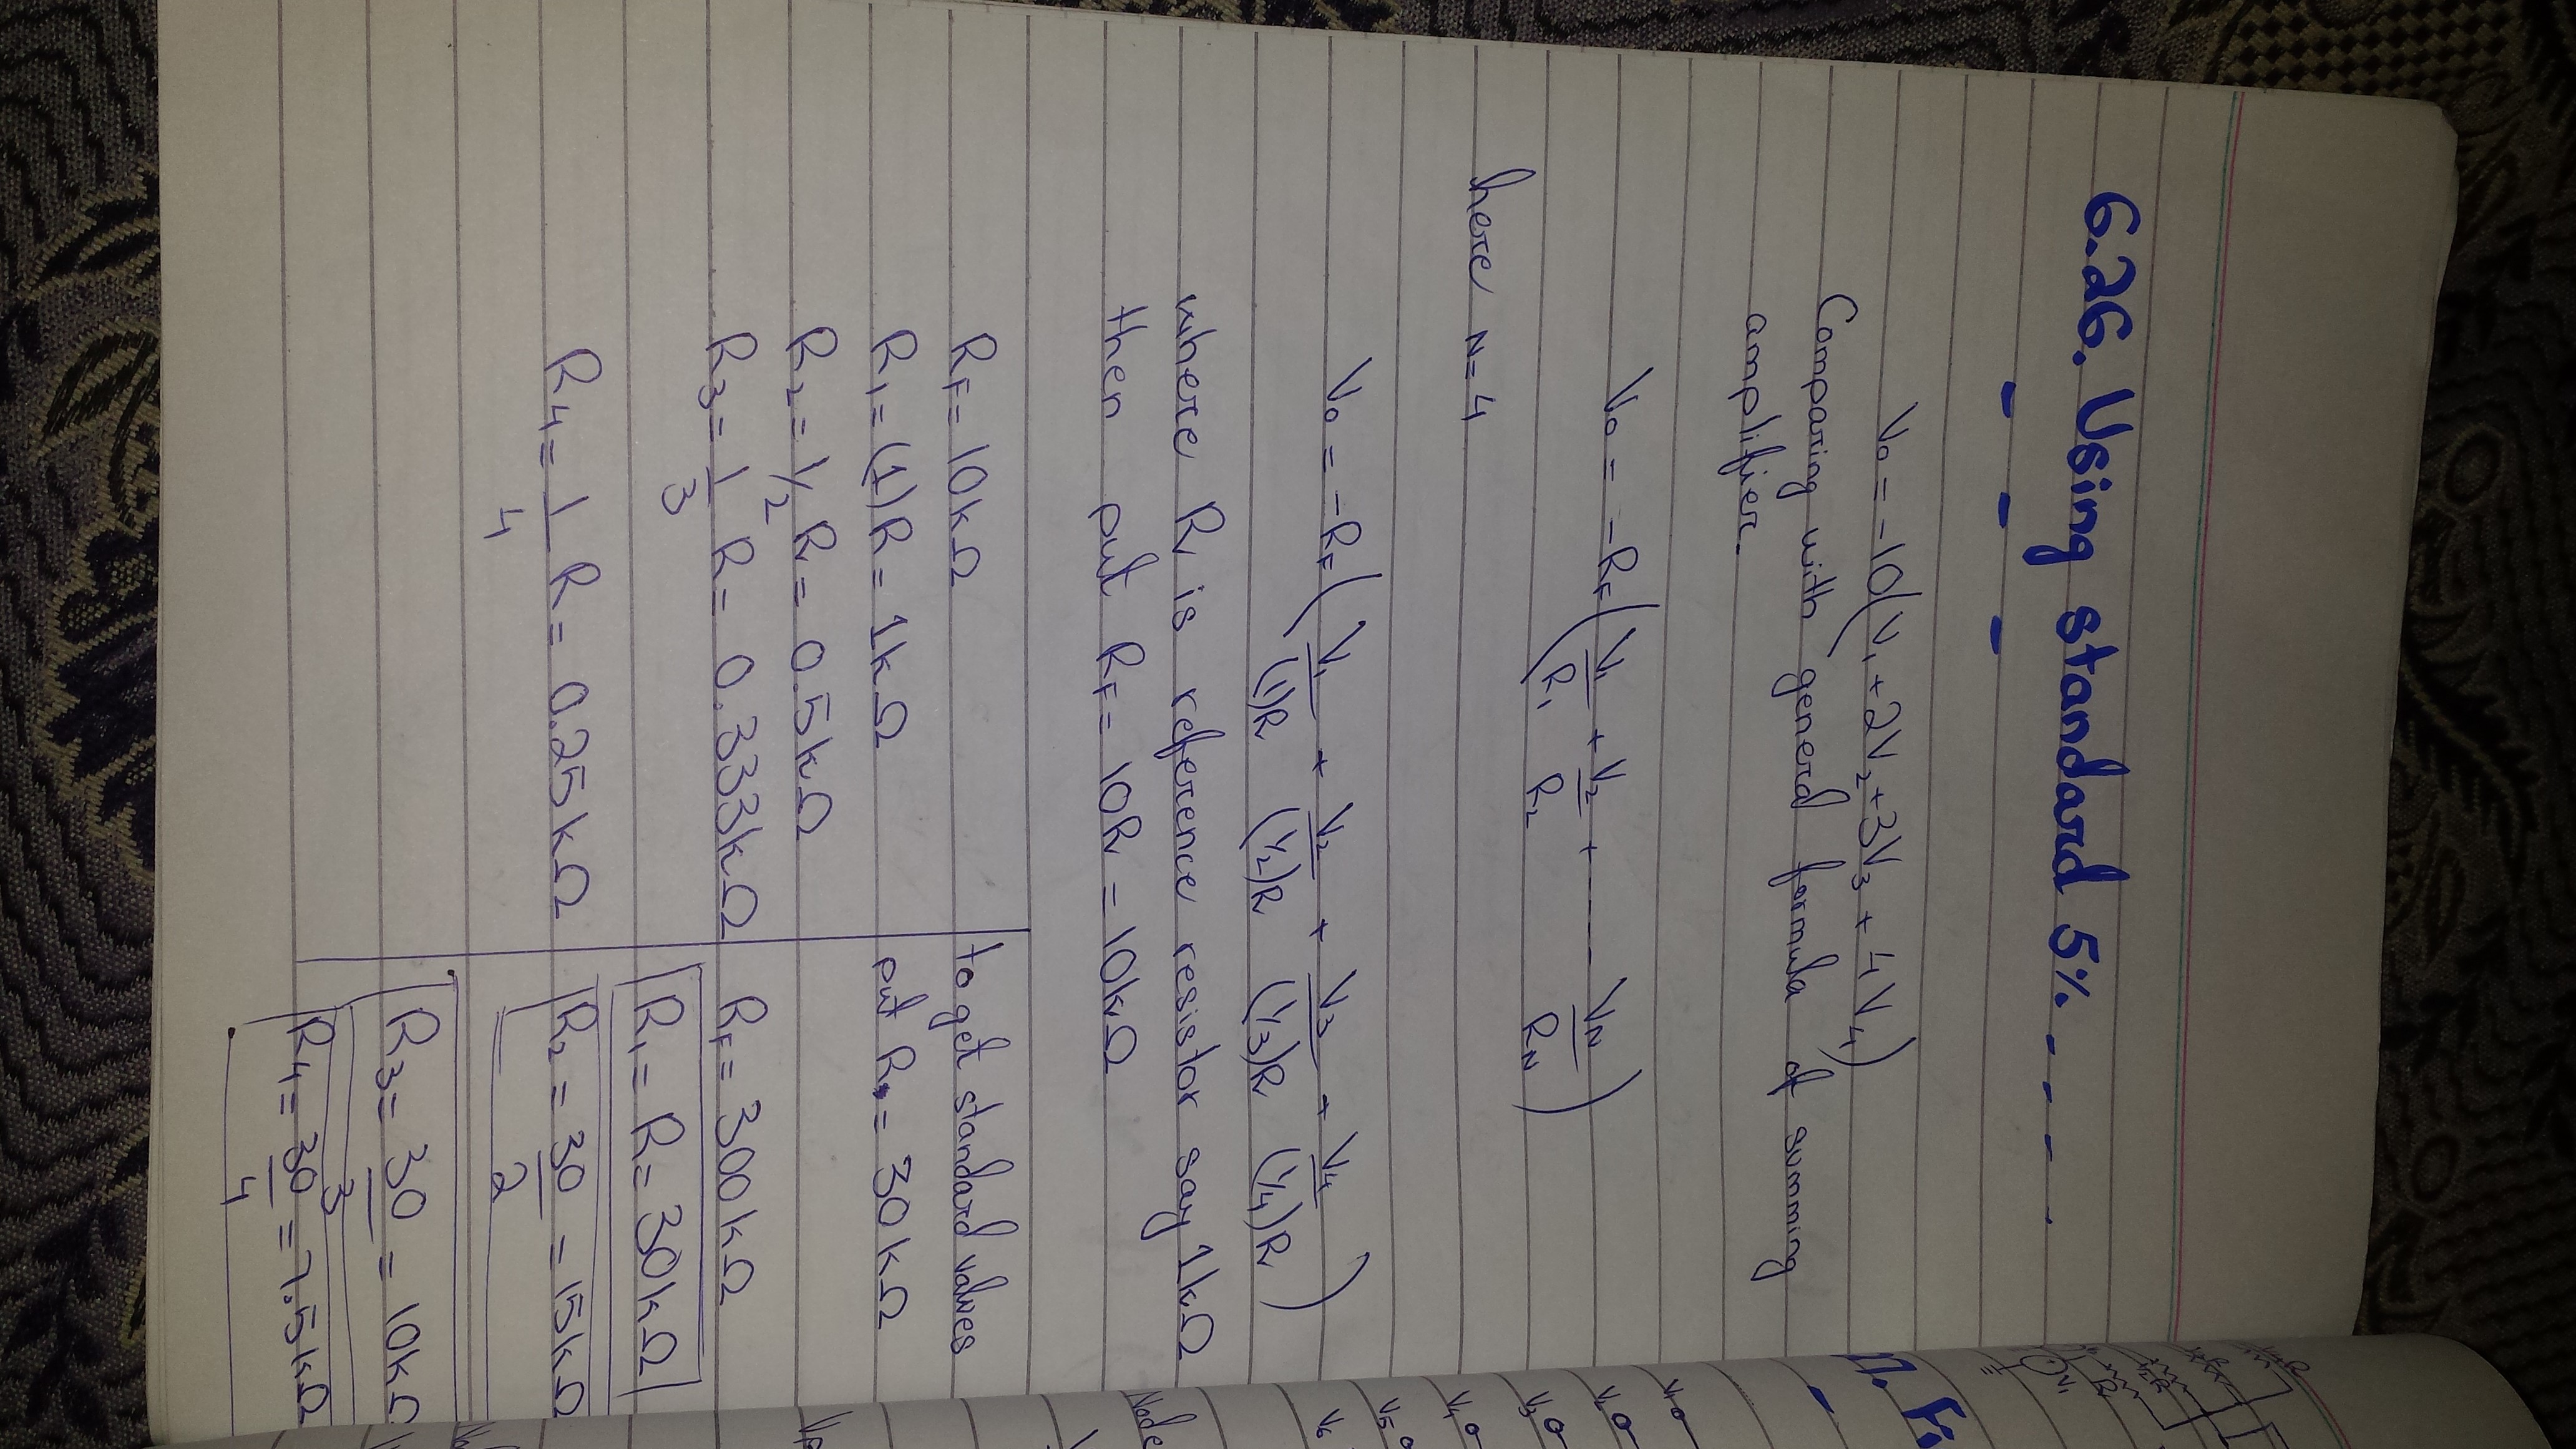 6.26. Using standard 5% - - - -
- - -
V₀ = -10(V₁ + 2V₂ + 3V₃ + 4V₄)
Comparing with general formula of summing
amplifier.
V₀ = -R_F(V₁/R₁ + V₂/R₂ + ------ V_N/R_N)
here N=4
V₀ = -R_F(V₁/(1)R + V₂/(1/2)R + V₃/(1/3)R + V₄/(1/4)R)
where R is reference resistor say 1kΩ
then put R_F = 10R = 10kΩ
R_F = 10kΩ
R₁ = (1)R = 1kΩ
R₂ = 1/2 R = 0.5kΩ
R₃ = 1/3 R = 0.333kΩ
R₄ = 1/4 R = 0.25kΩ
to get standard values
put R = 30kΩ
R_F = 300kΩ
R₁ = R = 30kΩ
R₂ = 30/2 = 15kΩ
R₃ = 30/3 = 10kΩ
R₄ = 30/4 = 7.5kΩ
V₁
V₂
V₃
V₄
V₅
V₆
Node